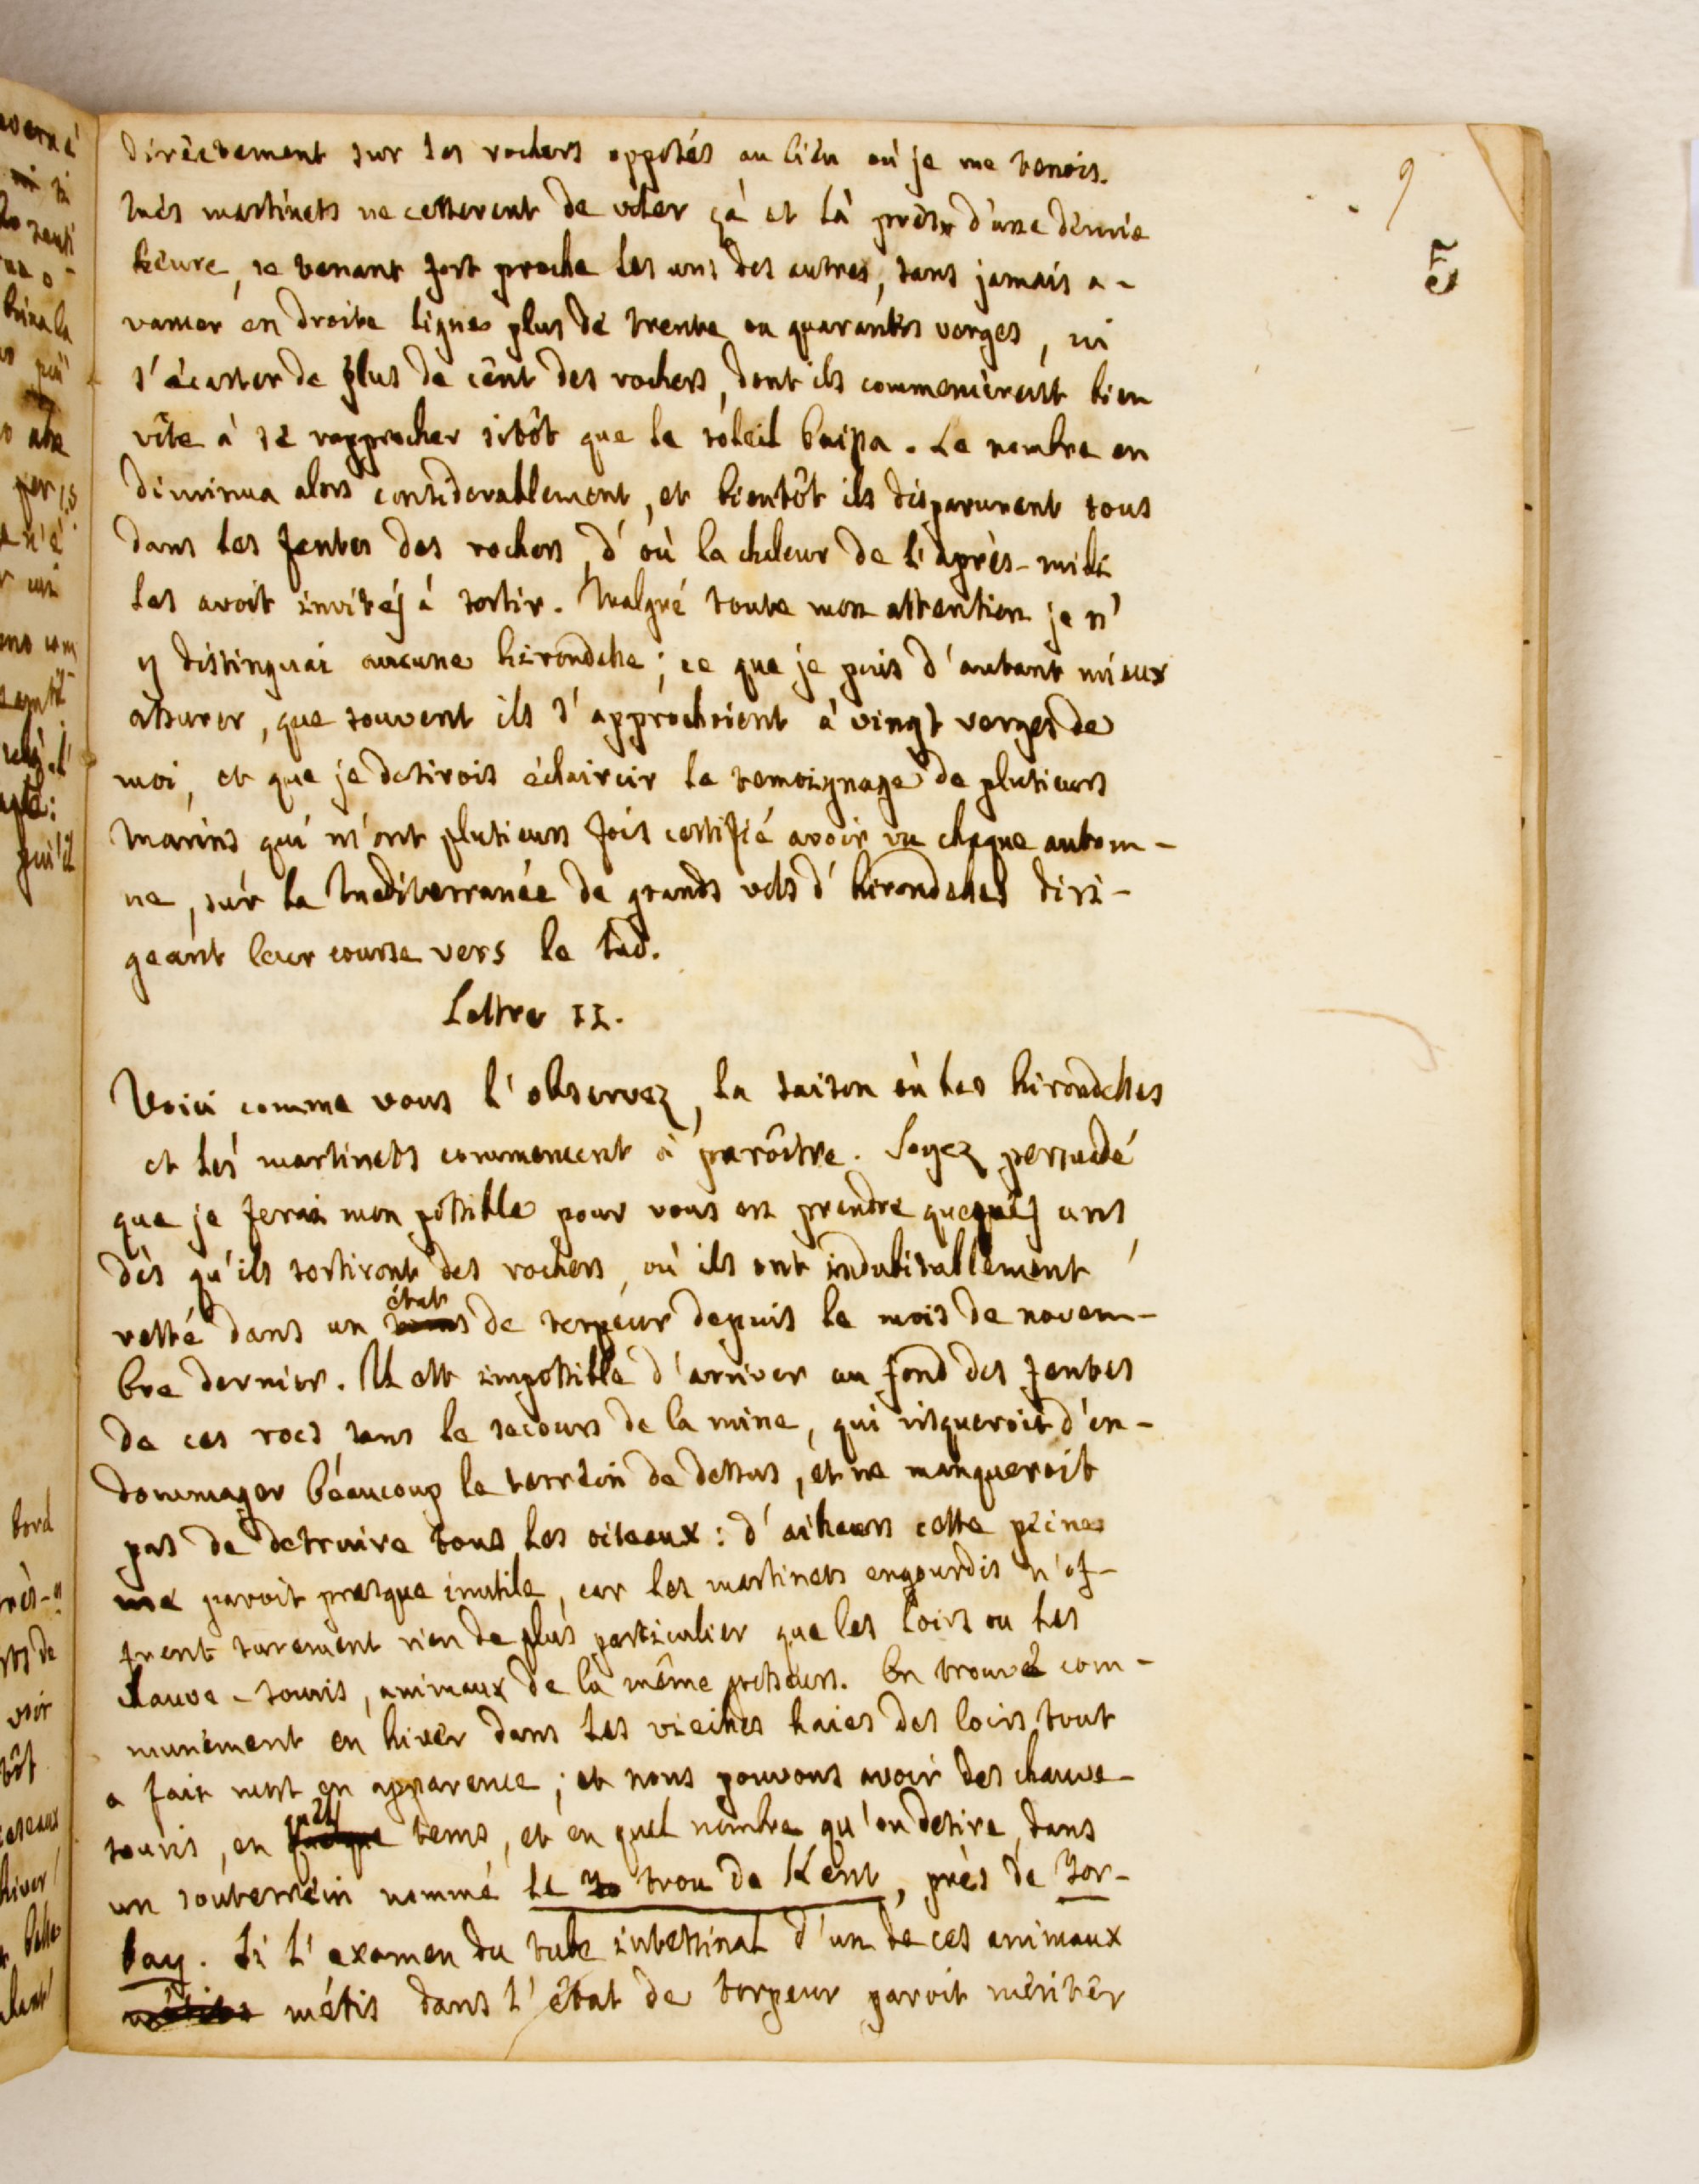 9
5
dirèctement sur les rochers opposés au lieu où je me tenois.
Mès martinets ne cesserent de voler çà et là près d'une démie
heure, se tenant fort proche les uns des autres, sans jamais a-
vancer en droite ligne plus de trente ou quarantes verges, ni
s'écarter de plus de cent des rochers, dont ils commencèrent bien
vîte à se rapprocher sitôt que le soleil baissa. Le nombre en
diminua alors considerablement, et bientôt ils disparurent tous
dans les fentes des rochers, d'où la chaleur de l'après-midi
les avoit invitéz à sortir. Malgré toute mon attention je n'
y distinguai aucune hirondelle; ce que je puis d'autant mieux
assurer, que souvent ils s'approchoient à vingt verges de
moi, et que je desirois éclaircir le temoignage de plusieurs
marins qui m'ont plusieurs fois certifié avoir vu chaque autom-
ne, sur la Mediterranée de grands vols d'hirondelles diri-
geant leur course vers le Sud.
Lettre II.
Voici comme vous l'observez, la saison où les hirondelles
et les martinets commencent à parôitre. Soyez persuadé
que je ferai mon possible pour vous en prendre quequéz uns,
dès qu'ils sortiront des rochers, où ils ont indubitablement
état
resté dans un de torpeur depuis le mois de novem-
bre dernier. Il est impossible d'arriver au fond des fentes
de ces rocs sans le secours de la mine, qui risqueroit d'en-
dommager beaucoup le terrein de dessus, et ne manqueroit
pas de detruire tous les oiseaux: d'ailleurs cette peine
me paroit presque inutile, car les martinets engourdis n'of-
frent surement rien de plus particulier que les loirs ou les
chauve-souris, animaux de la même
On trouve com-
munément en hiver dans les vieilles haies des loirs tout
a fait mort en apparence; et nous pouvons avoir des chauve-
quel
souris, en tems, et en quel nombre qu'on desire, dans
un souterréin nommé le trou de Kent, près de Tor-
bay. Si l'examen du tube intestinal d'un de ces animaux
métis dans l'état de torpeur paroit mériter